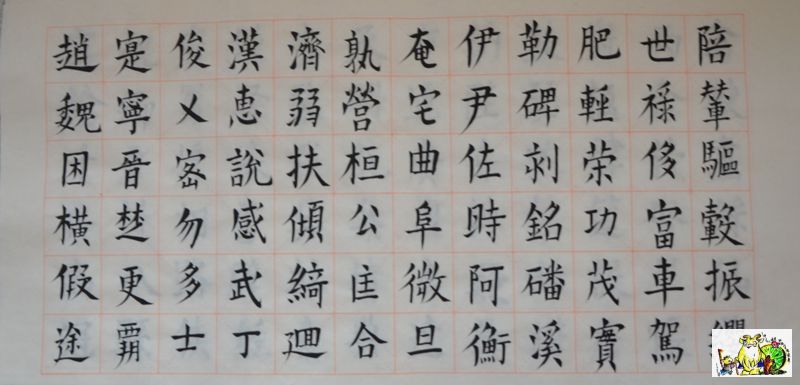 陪輦驅轂振
世祿侈富車駕
肥輕荣功茂實
勒碑刻銘磻溪
伊尹佐時阿衡
奄宅曲阜微旦
孰營桓公匡合
濟弱扶傾綺廻
漢恵說感武丁
俊乂密勿多士
寔寧晉楚更覇
趙魏困橫假途